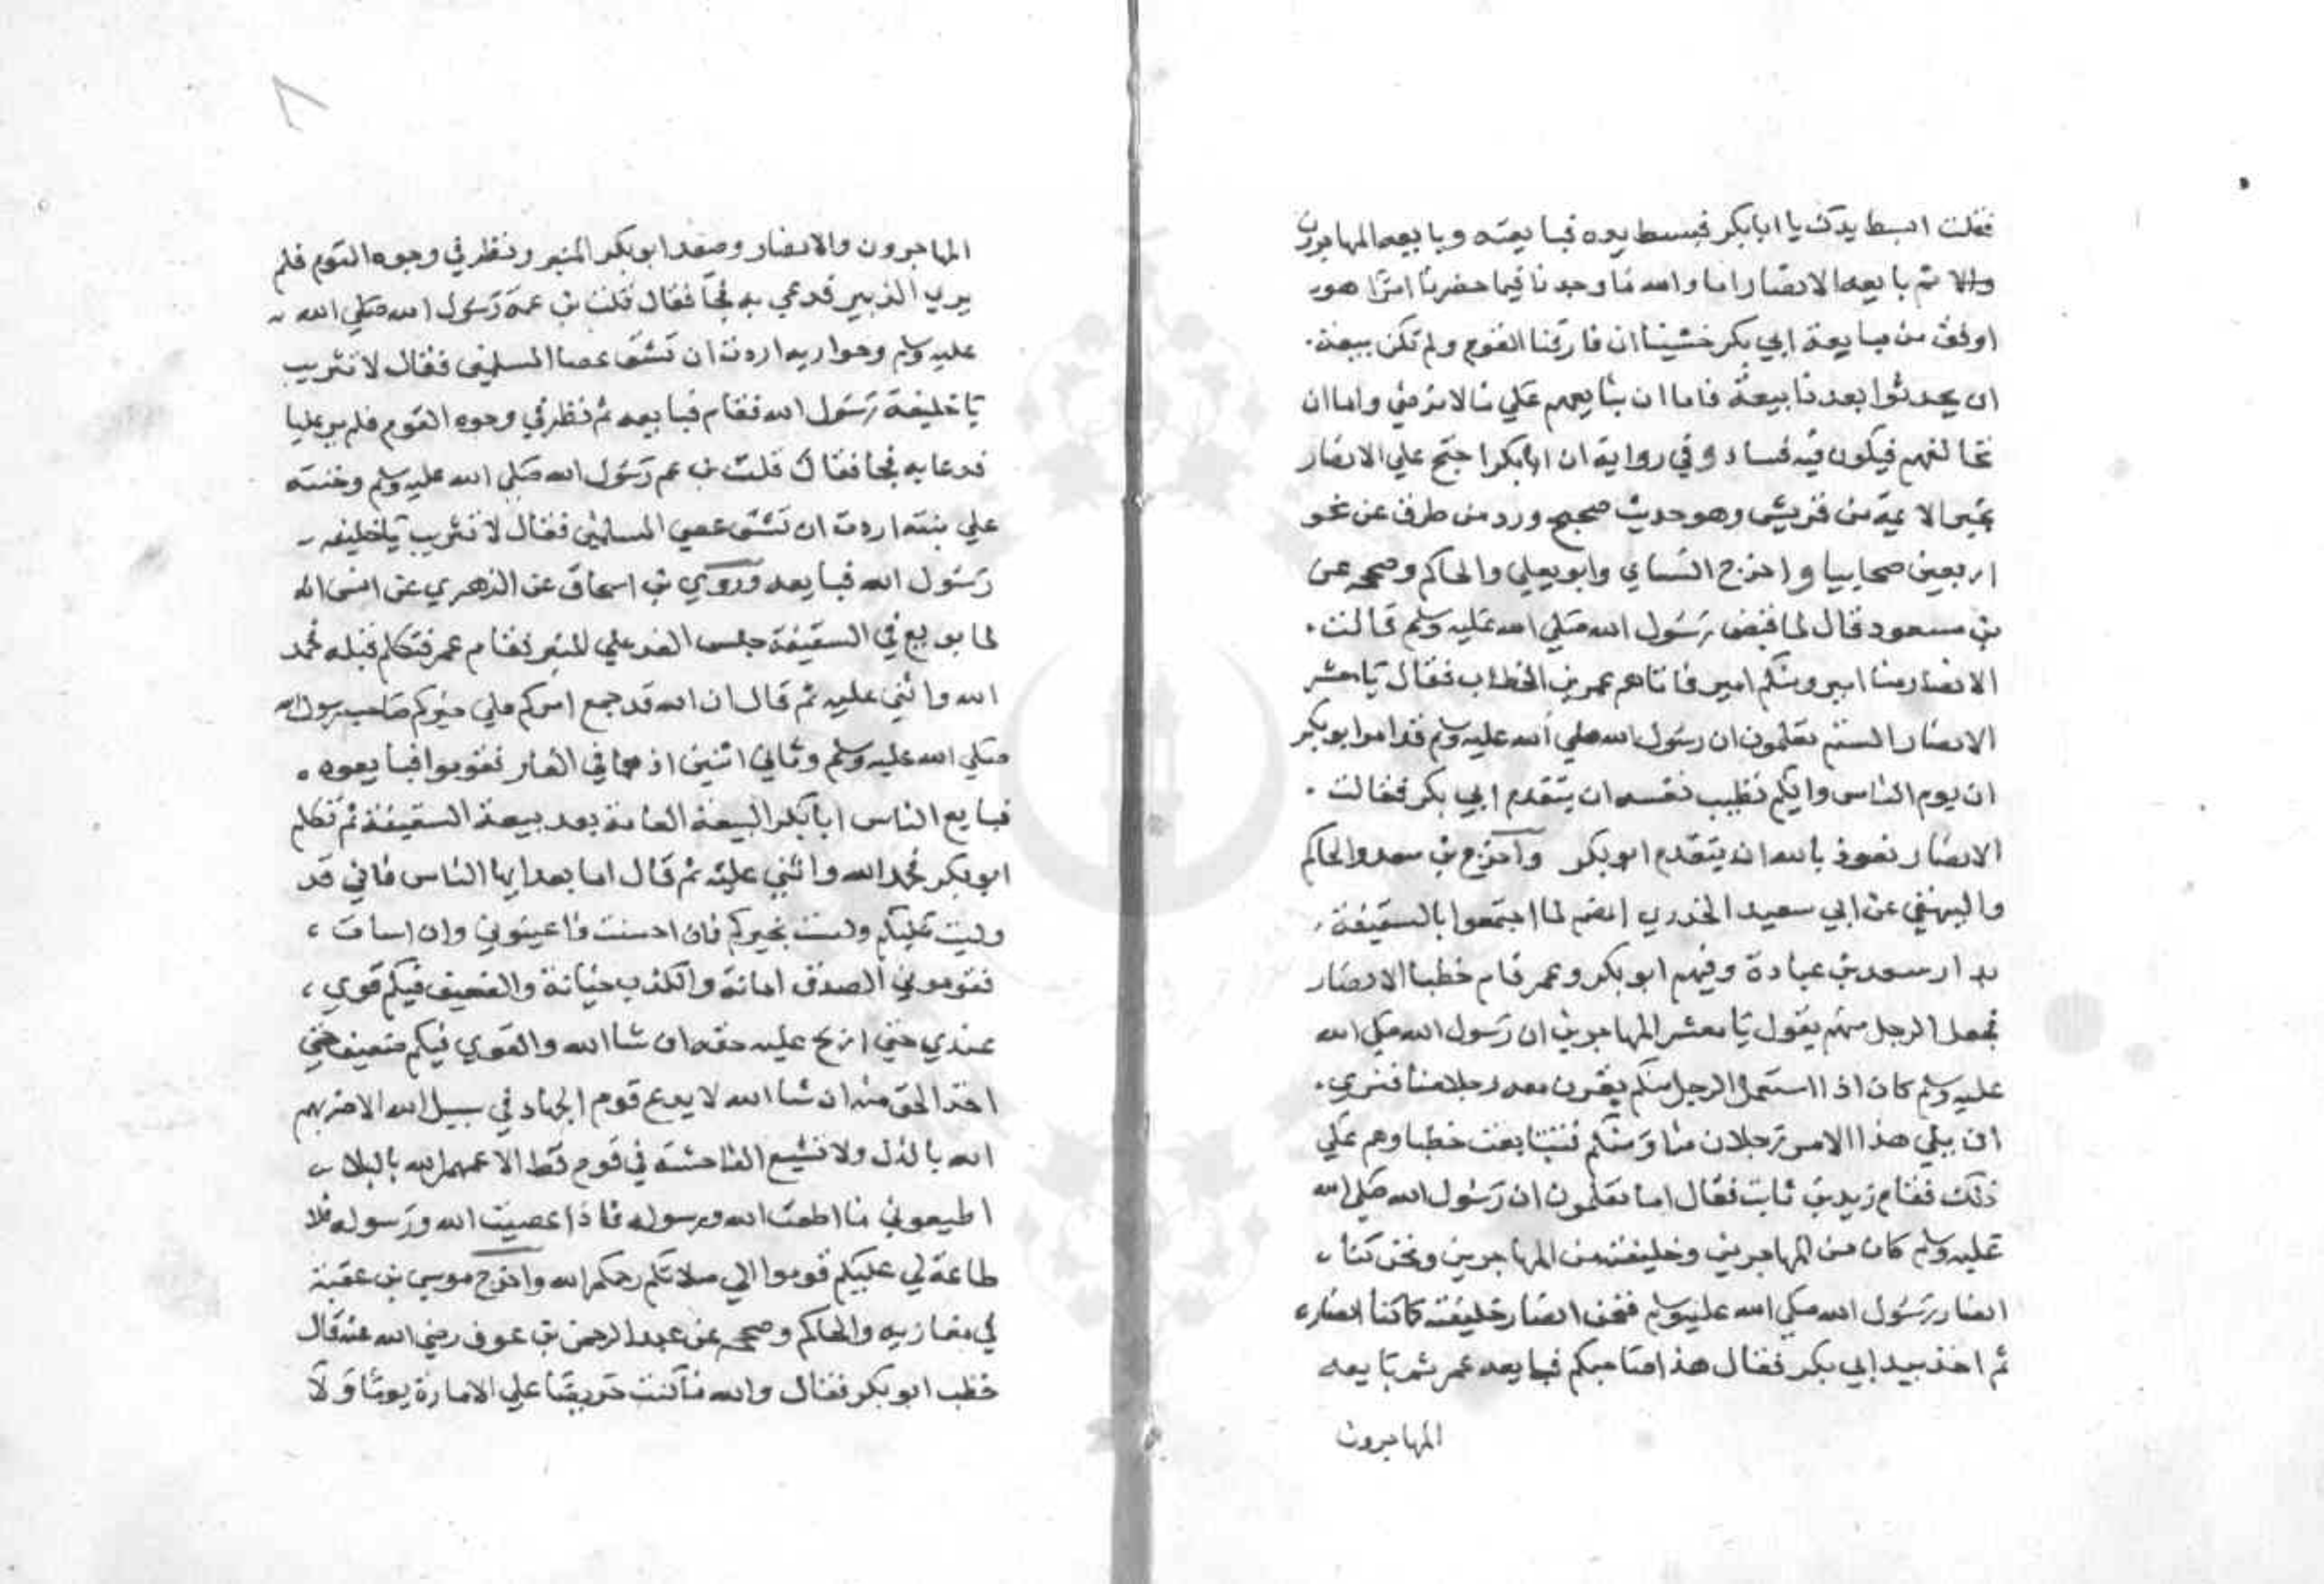 فقلت ابسط يدك يا ابا بكر فبسط يده فبايعته وبايعه المهاجرون
ثم بايعه الانصار اما والله ما وجدنا فيما حضرنا امرا هو
اوفق من مبايعة ابي بكر خشينا ان فارقنا القوم ولم تكن بيعة
ان يحدثوا بعدنا بيعة فاما ان نبايعهم علي ما لا نرضي واما ان
نخالفهم فيكون فيه فساد وفي رواية ان ابا بكر احتج علي الانصار
بخبر الايمة من قريش وهو حديث صحيح ورد من طرق عن نحو
اربعين صحابيا واخرج النساي وابو يعلي والحاكم وصححه عن
بن مسعود قال لما قبض رسول الله صلي الله عليه وسلم قالت
الانصار منا امير ومنكم امير فاتاهم عمر بن الخطاب فقال يا معشر
الانصار الستم تعلمون ان رسول الله صلي الله عليه وسلم قد امر ابو بكر
ان يوم الناس وايكم تطيب نفسه ان يتقدم ابي بكر فقالت
الانصار نعوذ بالله ان يتقدم ابو بكر واخرج بن سعد والحاكم
والبيهقي عن ابي سعيد الخدري انهم لما اجتمعوا بالسقيفة
بدار سعد بن عبادة وفيهم ابو بكر وعمر قام خطبا الانصار
فجعل الرجل منهم يقول يا معشر المهاجرين ان رسول الله صلي الله
عليه وسلم كان اذا استعمل الرجل منكم يقرن معه رجلا منا فنري
ان يلي هذا الامر رجلان منا ومنكم فتتابعت خطباوهم علي
ذلك فقام زيد بن ثابت فقال اما تعلمون ان رسول الله صلي الله
عليه وسلم كان من المهاجرين وخليفته من المهاجرين ونحن كنا
انصار رسول الله صلي الله عليه وسلم فنحن انصار خليفته كما كنا انصاره
ثم اخذ بيد ابي بكر فقال هذا صاحبكم فبايعه عمر ثم بايعه
المهاجرون
٨
المهاجرون والانصار وصعد ابو بكر المنبر ونظر في وجوه القوم فلم
يري الزبير فدعي به فجا فقال قلت بن عمة رسول الله صلي الله
عليه وسلم وحواريه اردت ان تشق عصا المسلمين فقال لا تثريب
يا خليفة رسول الله فقام فبايعه ثم نظر في وجوه القوم فلم ير عليا
فدعا به فجا فقال قلت بن عم رسول الله صلي الله عليه وسلم وختنه
علي بنته اردت ان تشق عصي المسلمين فقال لا تثريب يا خليفه
رسول الله فبايعه وروي بن اسحاق عن الزهري عن انس انه
لما بويع في السقيفة جلس الغد علي المنبر فقام عمر فتكلم قبله فحمد
الله واثني عليه ثم قال ان الله قد جمع امركم علي خيركم صاحب رسول الله
صلي الله عليه وسلم وثاني اثنين اذ هما في الغار فقوموا فبايعوه
فبايع الناس ابا بكر البيعة العامة بعد بيعة السقيفة ثم تكلم
ابو بكر فحمد الله واثني عليه ثم قال اما بعد ايها الناس فاني قد
وليت عليكم ولست بخيركم فان احسنت فاعينوني وان اسات
فقوموني الصدق امانة والكذب خيانة والضعيف فيكم قوي
عندي حتي ازيح عليه حقه ان شا الله والقوي فيكم ضعيف حتي
اخذ الحق منه ان شا الله لا يدع قوم الجهاد في سبيل الله الا ضربهم
الله بالذل ولا تشيع الفاحشة في قوم قط الا عمهم الله بالبلا
اطيعوني ما اطعت الله ورسوله فاذا عصيت الله ورسوله فلا
طاعة لي عليكم قوموا الي صلاتكم رحمكم الله واخرج موسي بن عقبة
في مغازيه والحاكم وصححه عن عبد الرحمن بن عوف رضي الله عنه قال
خطب ابو بكر فقال والله ما كنت حريصا علي الامارة يوما ولا